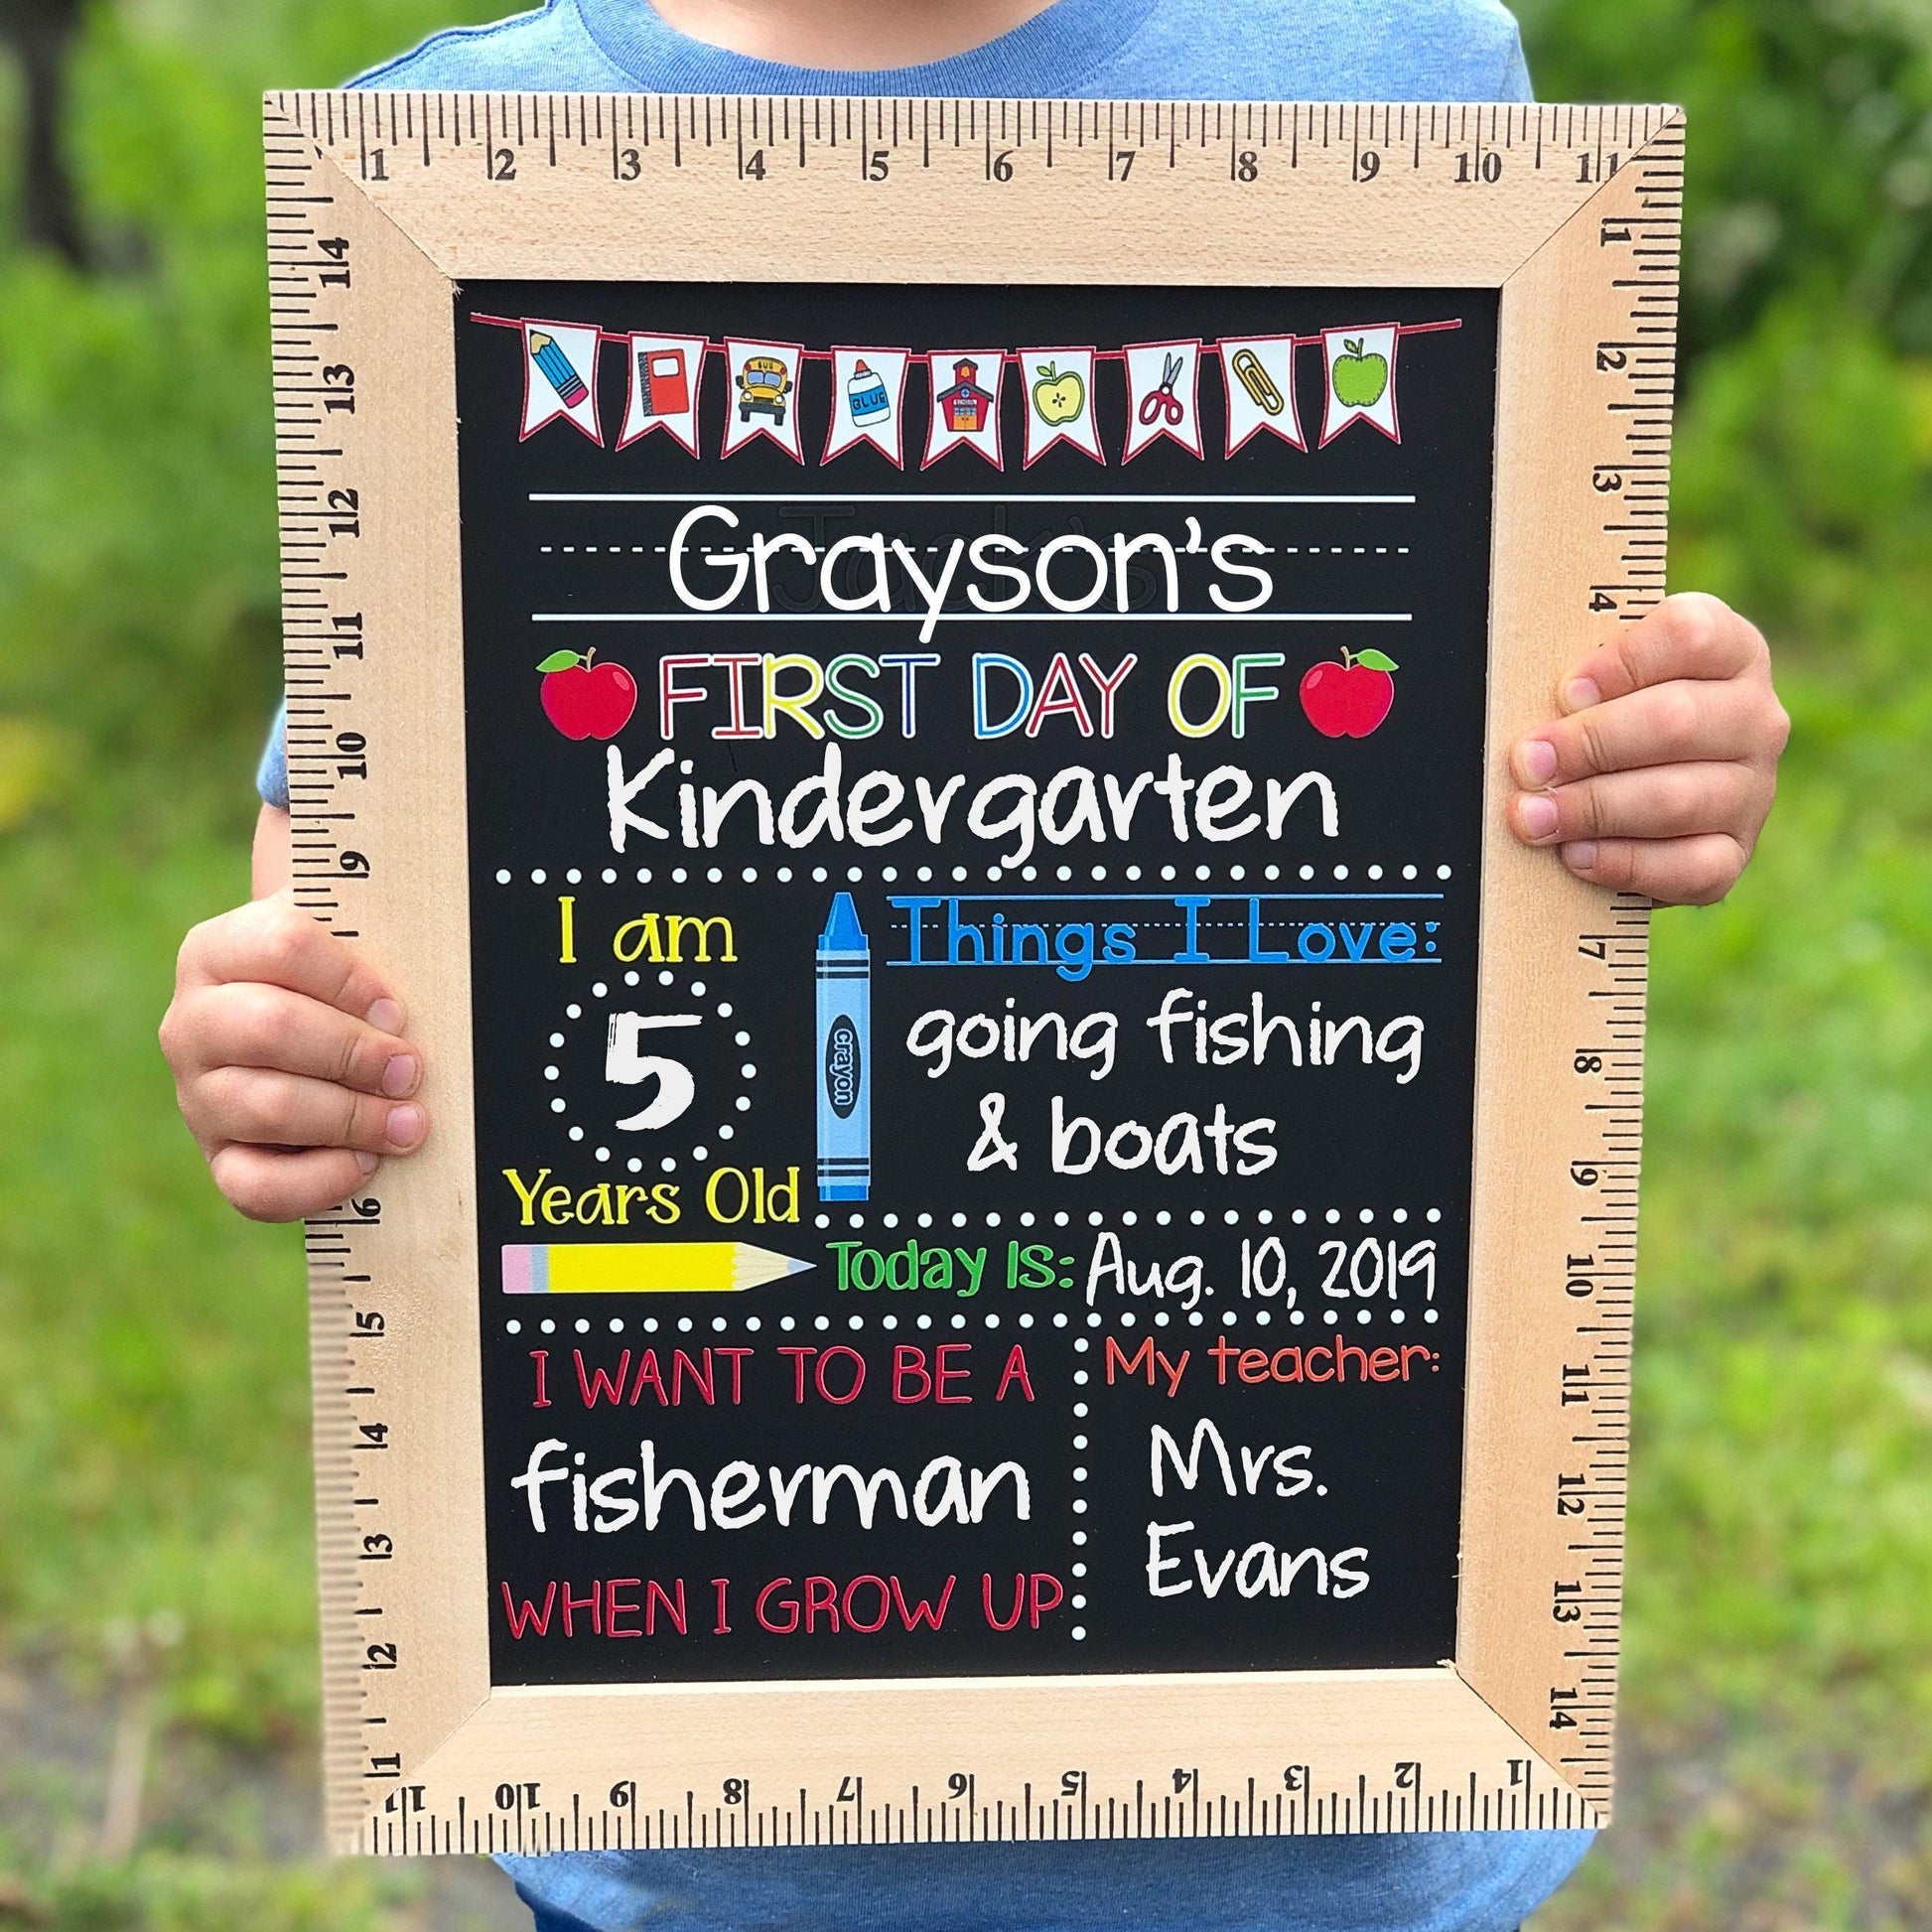 1 2 3 4 5 6 7 8 9 10 11
BUS
BLUE
SCHOOL
Grayson's
FIRST DAY OF
Kindergarten
I am
5
Years Old
crayon
Things I Love:
going fishing
& boats
Today Is: Aug. 10, 2019
I WANT TO BE A
fisherman
WHEN I GROW UP
My teacher:
Mrs.
Evans
1 2 3 4 7 8 9 10 11 12 13 14
1 2 3 4 5 6 7 8 9 10 11
1 2 3 4 5 6 9 10 11 12 13 14